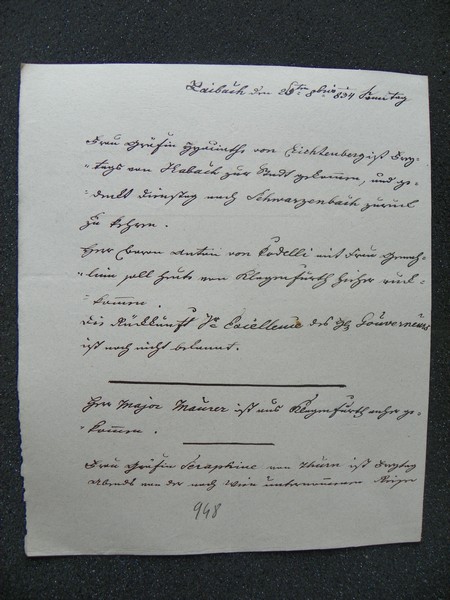 Laibach den 26ten 8bris 834 Sonntag
Frau Gräfin Hyacinthe von Lichtenberg ist Frey-
-tags von Habach zur Stadt gekommen, und ge-
-denkt Dienstag nach Schwarzenbach zurück
zu kehren.
Herr Baron Anton von Codelli mit Frau Gemah-
-linn soll heute von Klagenfurth hieher rück-
kommen.
Die Rückkunft Sr Excellenz des H Gouverneurs
ist noch nicht bekannt.
Herr Major Maurer ist aus Klagenfurth anher ge-
-kommen.
Frau Gräfin Seraphine von Thurn ist Freytag
Abends von der nach Wien unternommenen Reise
948